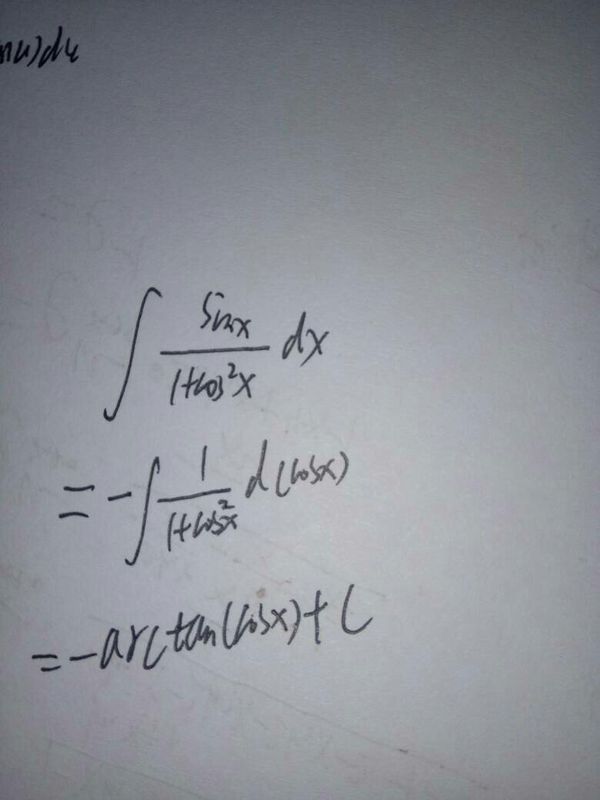 ∫ sinx/(1+cos²x) dx
= -∫ 1/(1+cos²x) d(cosx)
= -arctan(cosx)+C